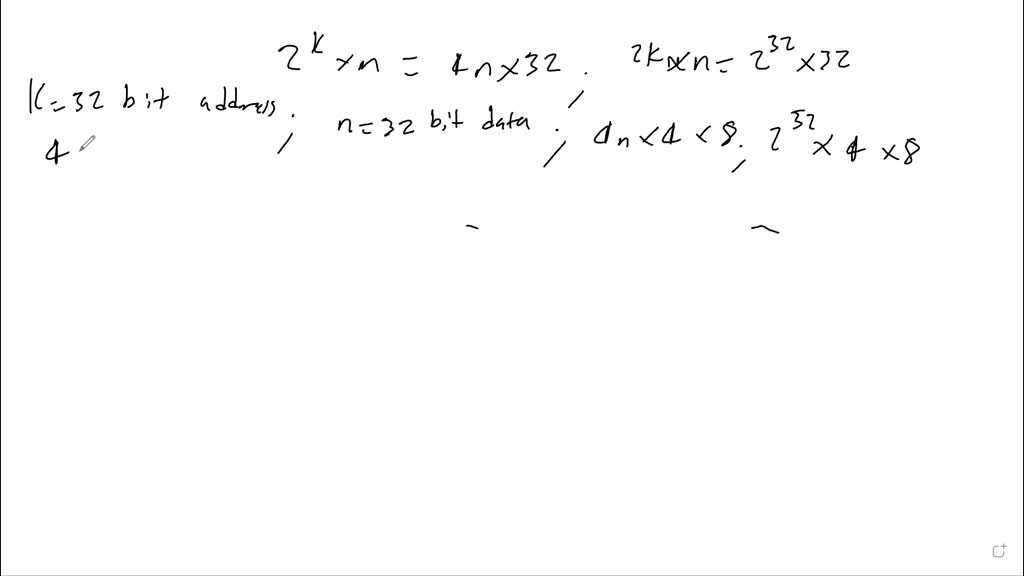 2^k × n = 4n × 32 ; 2k × n = 2^32 × 32
K = 32 bit address ; n = 32 bit data ; 4n × 4 × 8 ; 2^32 × 4 × 8
4